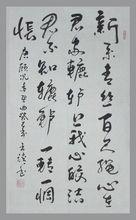 新系青丝百尺绳心在
君家辘轳上我心皎洁
君不知辘轳一转一惆
怅
唐顾况